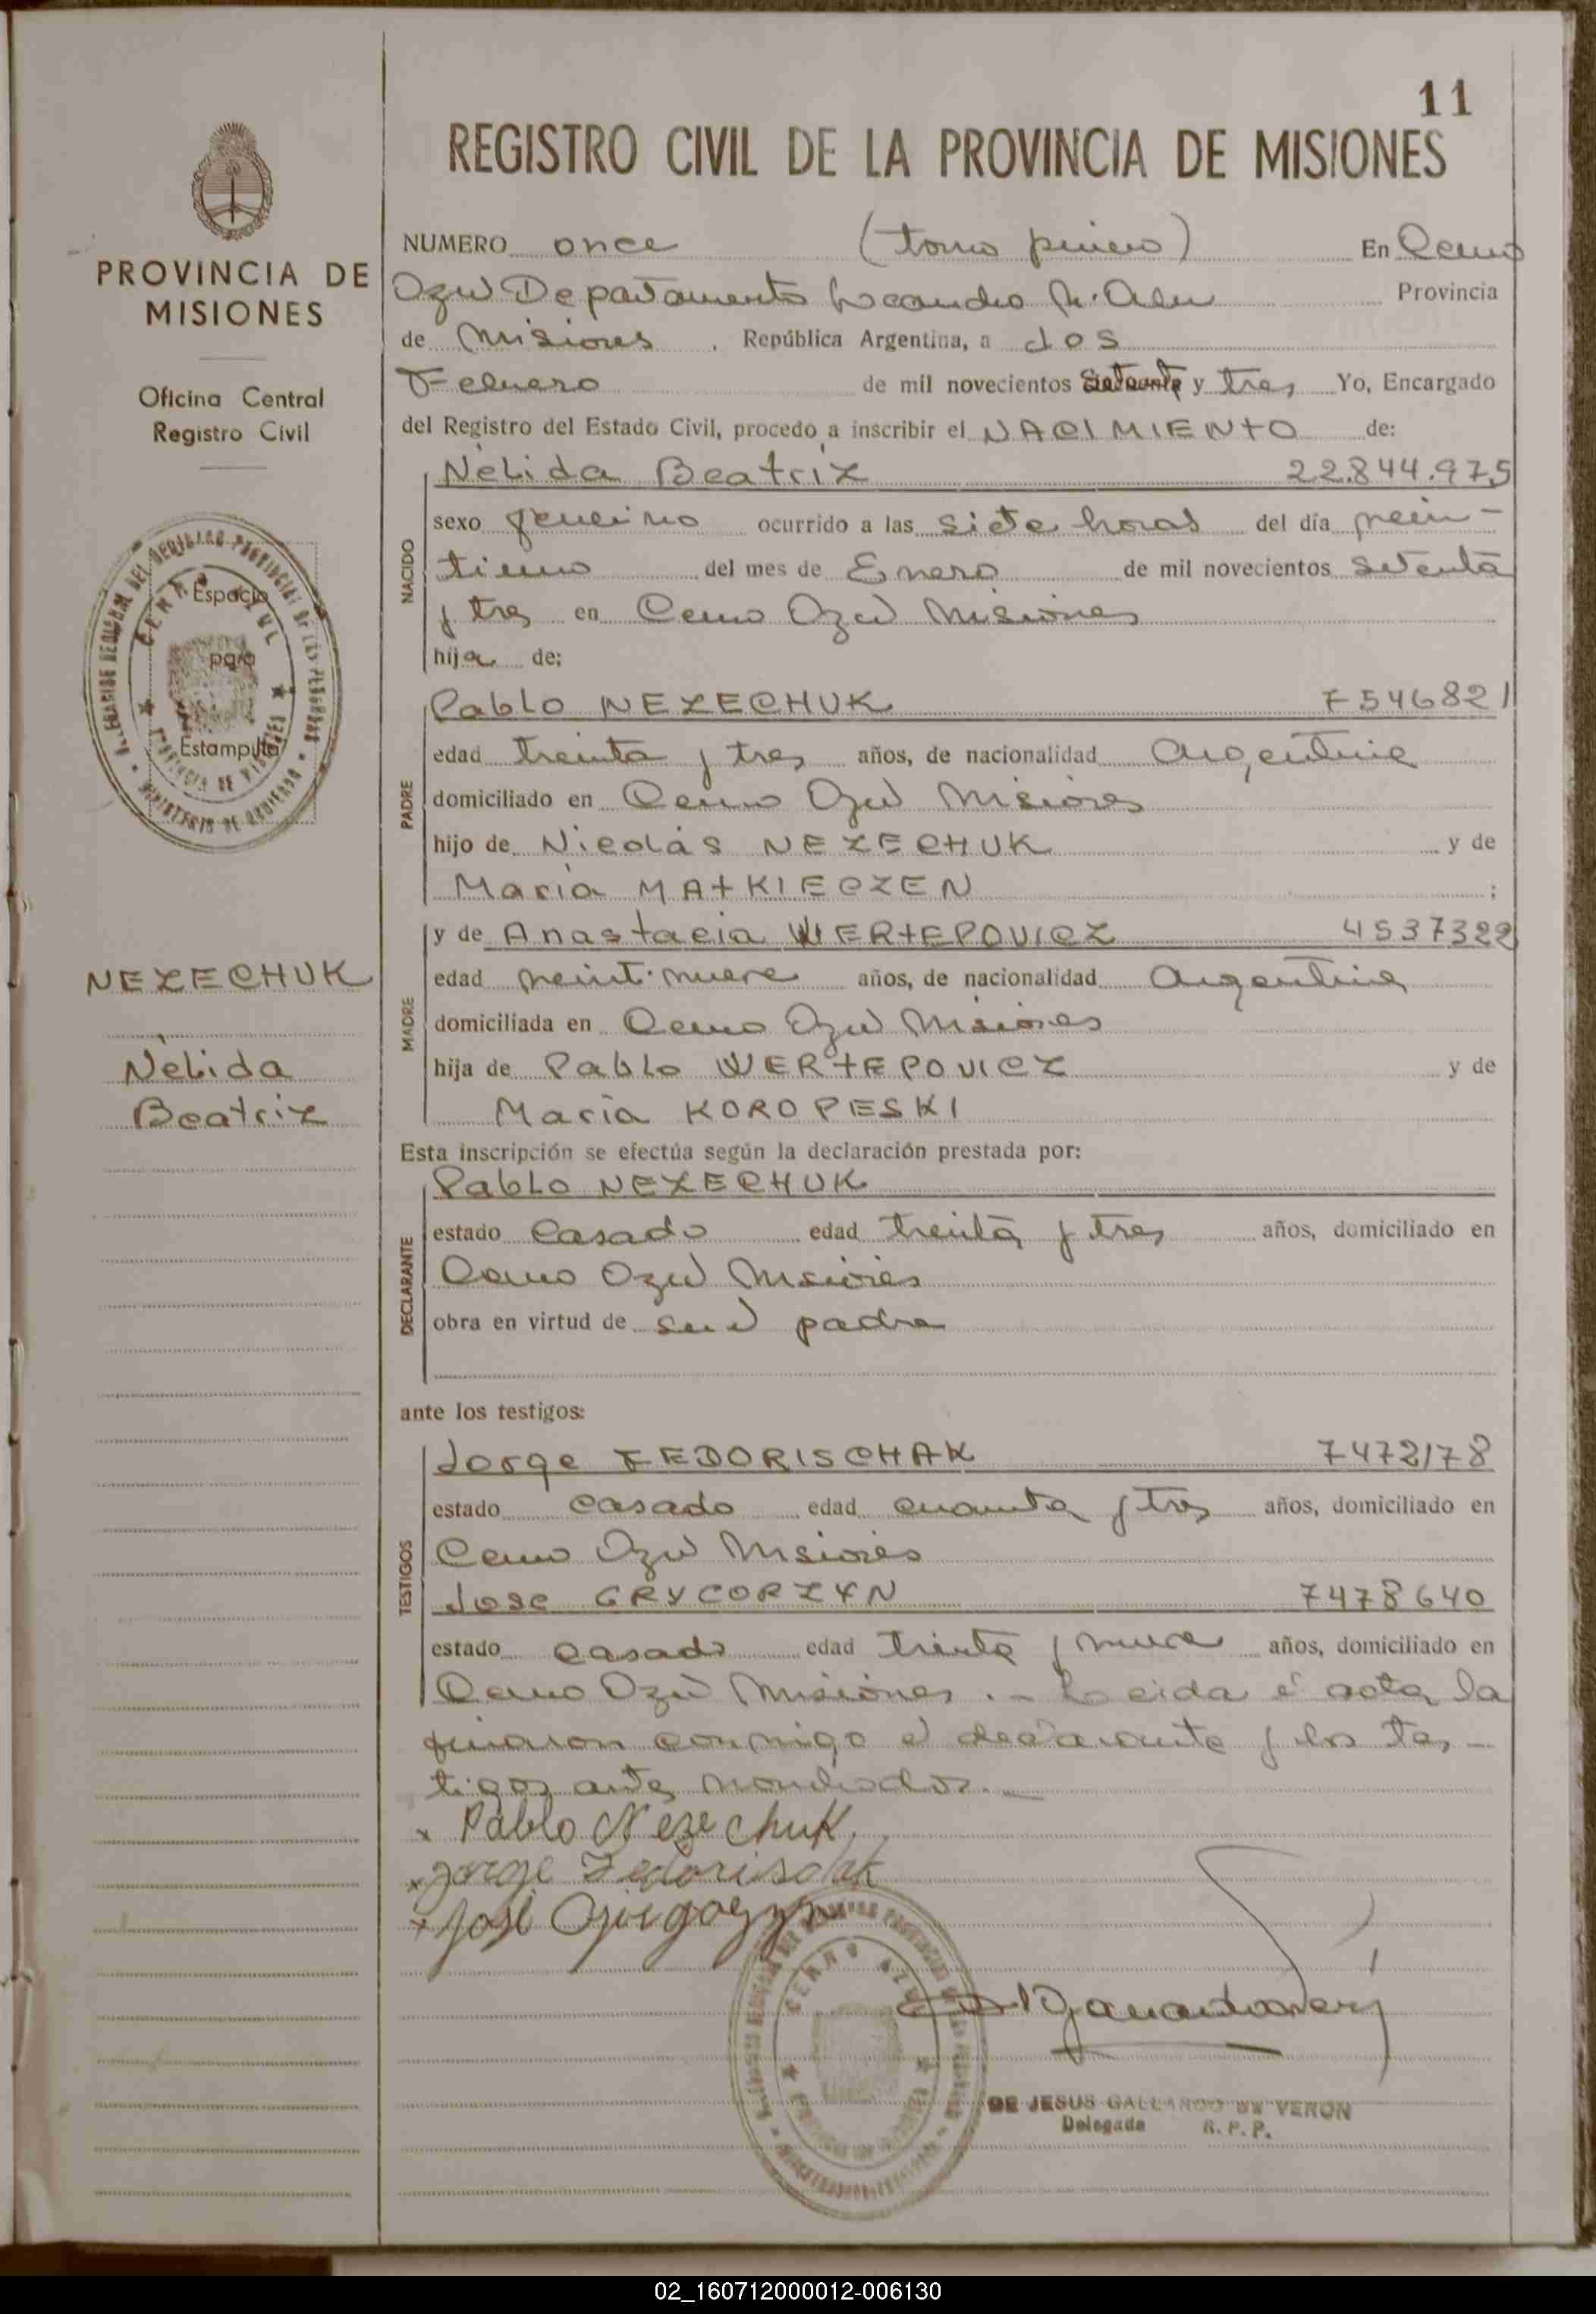 11
REGISTRO CIVIL DE LA PROVINCIA DE MISIONES
PROVINCIA DE
MISIONES
Oficina Central
Registro Civil
Espacio
para
Estampilla
NEZECHUK
Nélida
Beatriz
NUMERO once (tomo primero) En Cerro
Azul Departamento Leandro N. Alem Provincia
de Misiones , República Argentina, a dos
Febrero de mil novecientos Setenta y tres Yo, Encargado
del Registro del Estado Civil, procedo a inscribir el NACIMIENTO de:
NACIDO
Nélida Beatriz 22.844.975
sexo femenino ocurrido a las siete horas del día vein-
tiuno del mes de Enero de mil novecientos setenta
y tres en Cerro Azul Misiones
hija de:
PADRE
Pablo NEZECHUK 7546821
edad treinta y tres años, de nacionalidad Argentina
domiciliado en Cerro Azul Misiones
hijo de Nicolás NEZECHUK y de
María MATKIECZEN ;
MADRE
y de Anastacia WERTEPOVICZ 4537322
edad veintinueve años, de nacionalidad Argentina
domiciliada en Cerro Azul Misiones
hija de Pablo WERTEPOVICZ y de
María KOROPESKI
Esta inscripción se efectúa según la declaración prestada por:
DECLARANTE
Pablo NEZECHUK
estado Casado edad treinta y tres años, domiciliado en
Cerro Azul Misiones
obra en virtud de ser el padre
ante los testigos:
TESTIGOS
Jorge FEDORISCHAK 7472178
estado casado edad cuarenta y tres años, domiciliado en
Cerro Azul Misiones
José GRYCORZYN 7478640
estado casado edad treinta y nueve años, domiciliado en
Cerro Azul Misiones . - Leida el acta la
firmaron conmigo el declarante y los tes-
tigos antes nombrados. -
x Pablo Nezechuk
x Jorge Fedorischak
x José
DE JESUS GALLARDO DE VERON
Delegada R. P. P.
02_160712000012-006130